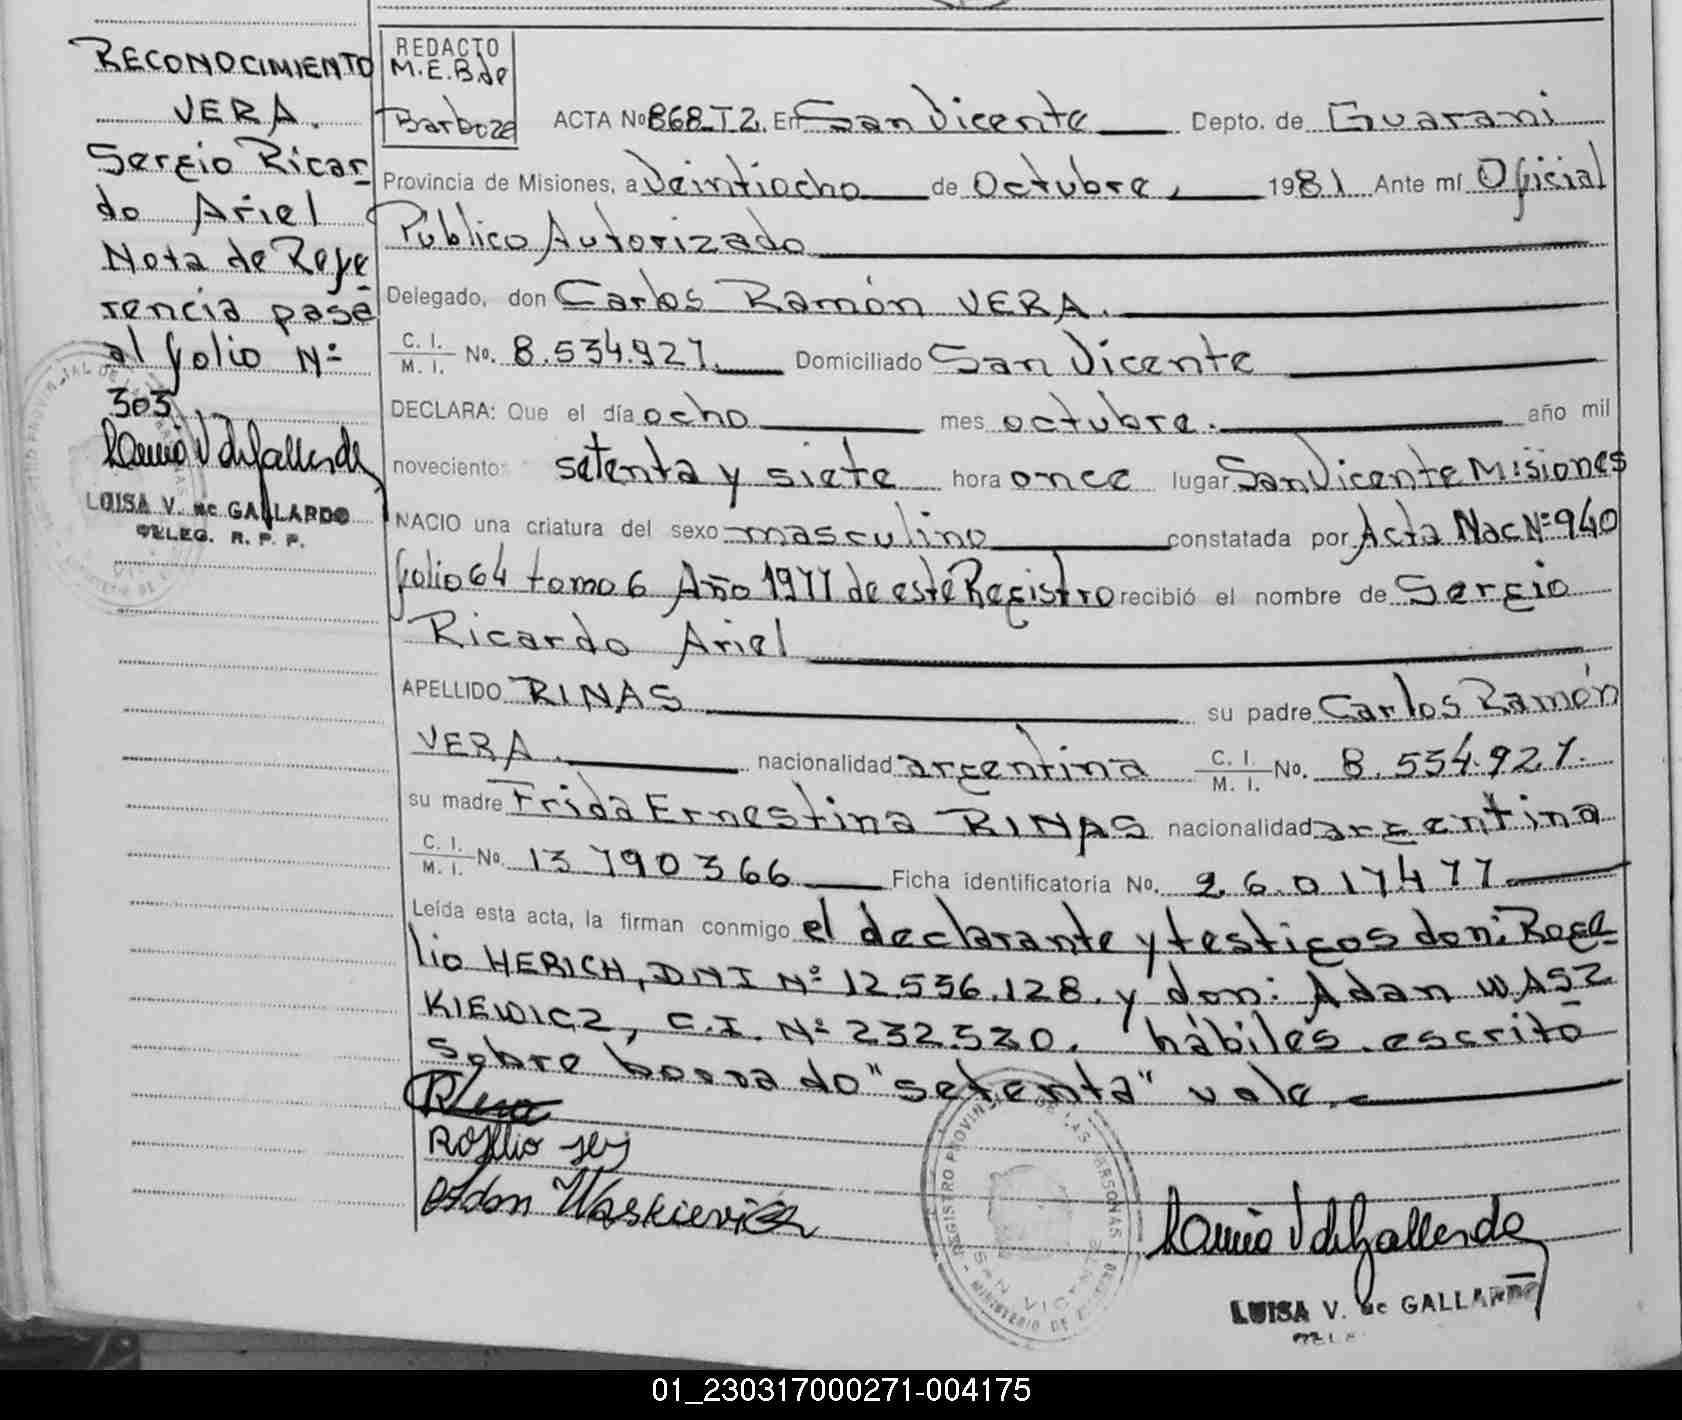 RECONOCIMIENTO
VERA.
Sergio Ricar
do Ariel
Nota de Refe
rencia pase
al folio Nº
303
LUISA V. de GALLARDO
DELEG. R. P. P.
REDACTO
M.E.B. de
Barboza
ACTA Nº 868-T2. En San Vicente Depto. de Guarani
Provincia de Misiones, a Veintiocho de Octubre, 1981 Ante mí Oficial
Publico Autorizado
Delegado, don Carlos Ramón VERA.
C. I.
M. I. No. 8.534.927. Domiciliado San Vicente
DECLARA: Que el día ocho mes octubre. año mil
noveciento setenta y siete hora once lugar San Vicente Misiones
NACIO una criatura del sexo masculino constatada por Acta Nac Nº 940
folio 64 tomo 6 Año 1977 de este Registro recibió el nombre de Sergio
Ricardo Ariel
APELLIDO RINAS su padre Carlos Ramón
VERA. nacionalidad argentina C. I.
M. I. No. 8.534.927.
su madre Frida Ernestina RINAS nacionalidad argentina
C. I.
M. I. No. 13 790 366 Ficha identificatoria No. 26.017477
Leída esta acta, la firman conmigo el declarante y testigos don: Roge
lio HERICH, DNI Nº 12.536.128. y don: Adan WASZ
KIEWICZ, C.I. Nº 232.530. hábiles. escrito
sobre borrado "setenta" vale.
Rogelio
Adan
REGISTRO PROVINCIAL DE LAS PERSONAS
SAN VICENTE
MINISTERIO DE
LUISA V. de GALLARDO
01_230317000271-004175